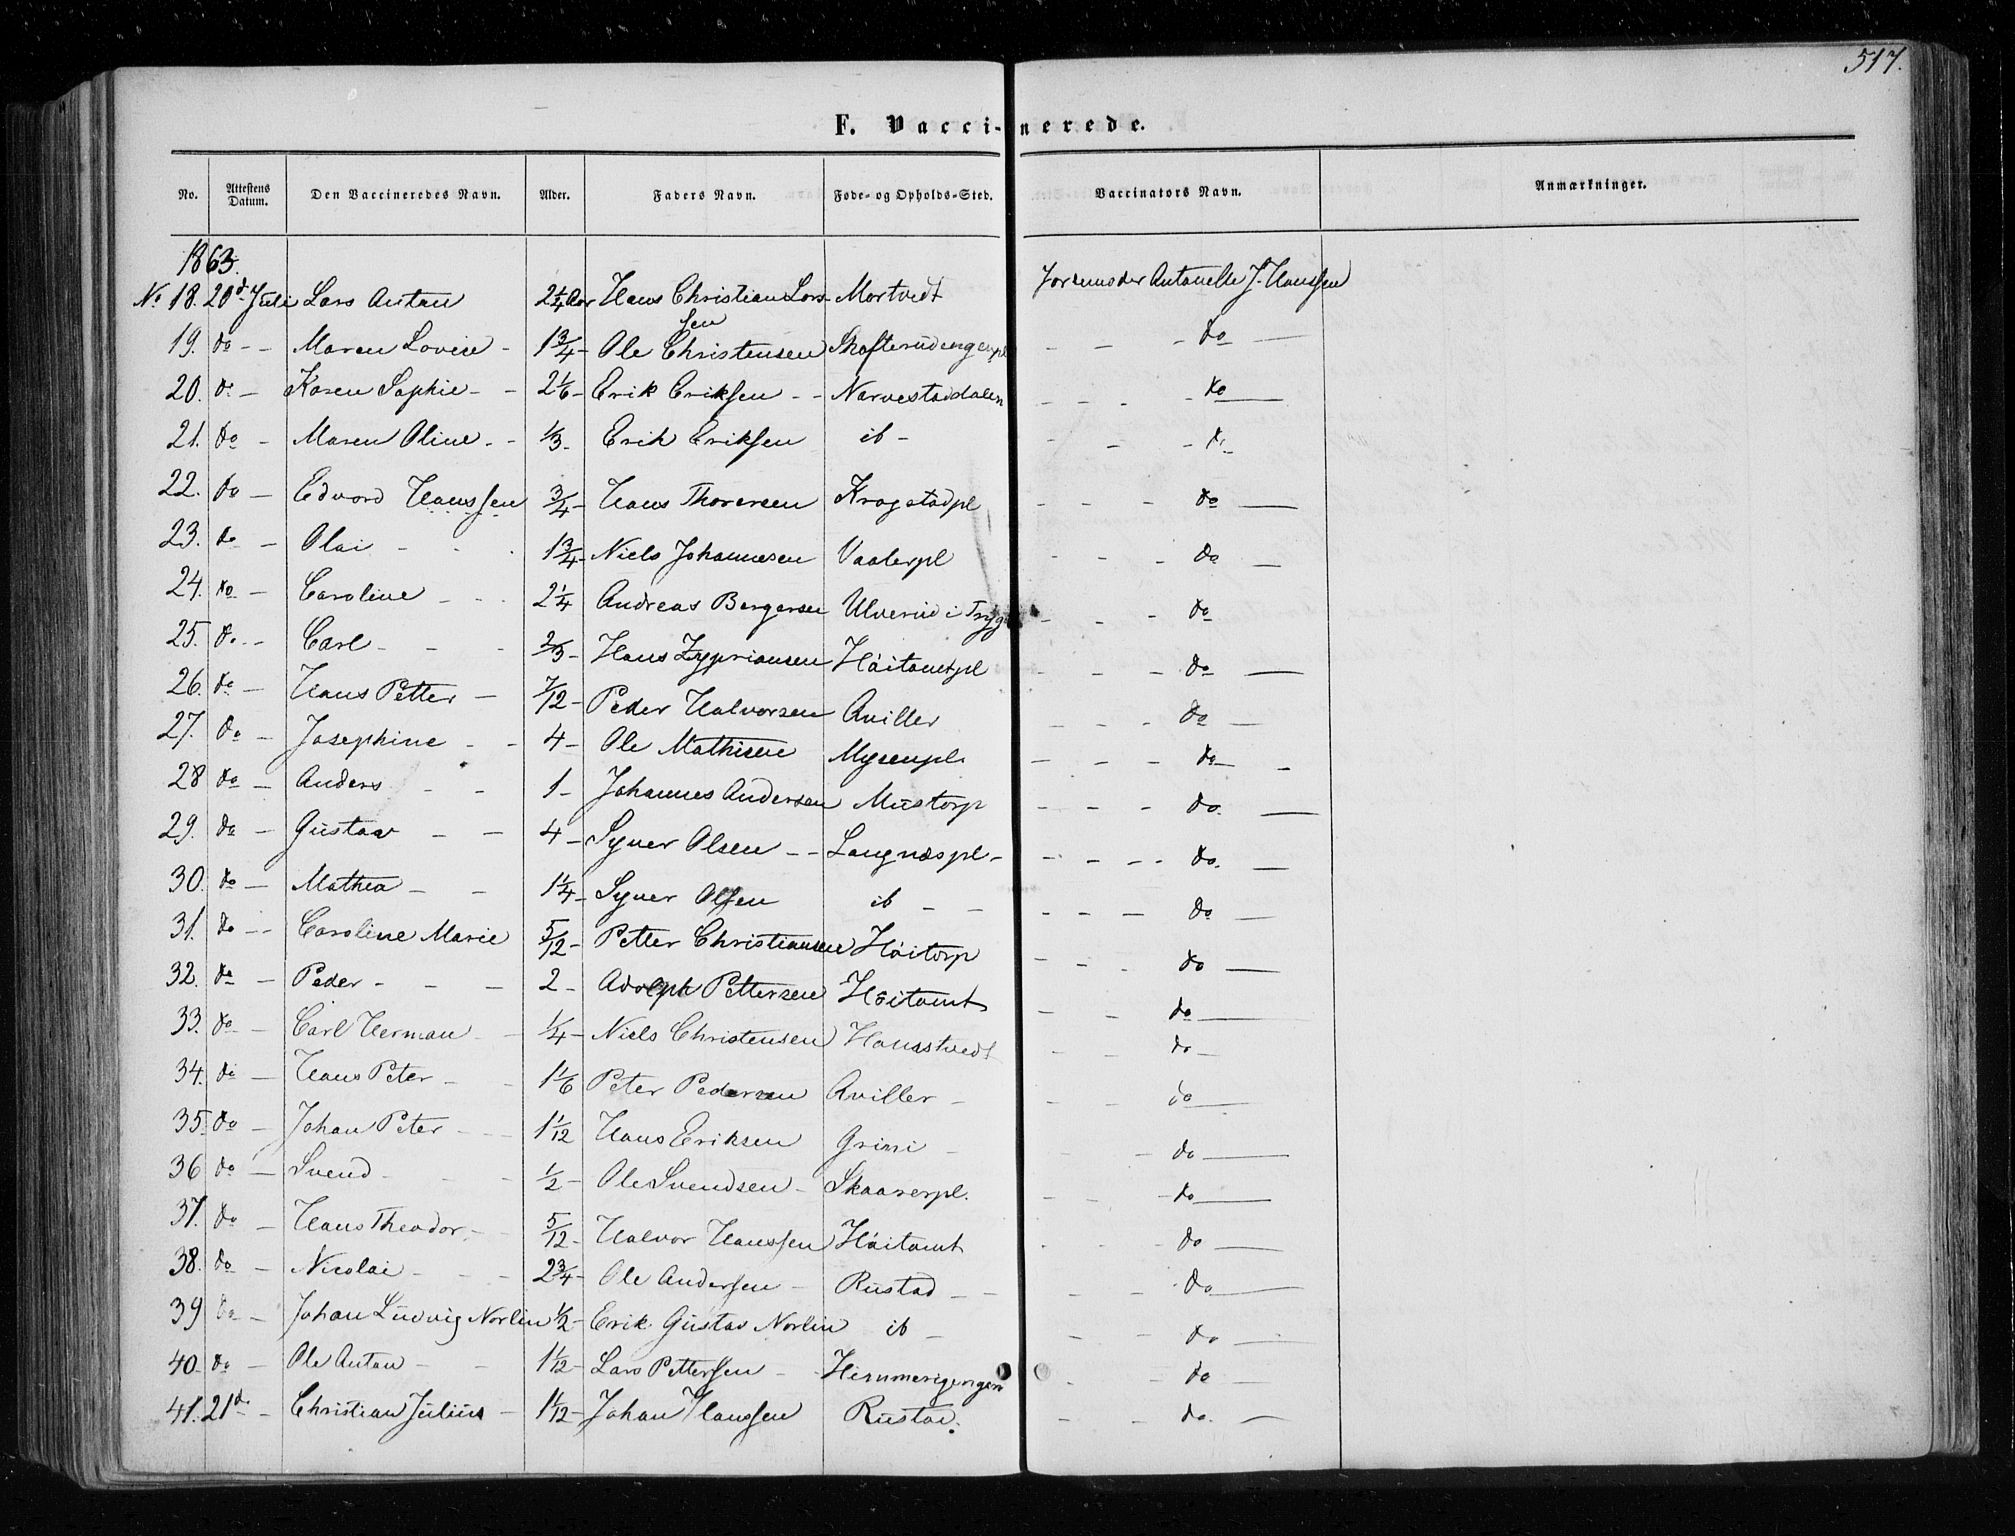 517.
F. Vaccinerede.
No. Attestens Datum. Den Vaccineredes Navn. Alder. Faders Navn. Føde- og Opholds-Sted. Vaccinators Navn. Anmærkninger.
1863.
No 18. 20d Juli Lars Antan 2 1/4 Aar Hans Christian Lars-sen Mortvedt Jordemoder Antonette J. Hanssen
19. do - - Maren Lovise - 1 3/4 - Ole Christensen Skofterudengenpl - - - do
20. do - Karen Sophie - - 2 1/6 - Erik Eriksen - - Narvestaddalen - - - - do
21. do - Maren Oline - - 1/3 - Erik Eriksen ib - - - - do
22. do - Edvard Hanssen 3/4 - Hans Thoresen Krogstadpl - - - do
23. do - Olai - - 1 3/4 - Niels Johannesen Vaalerpl - - - do
24. do - Caroline - - 2 1/4 Andreas Bergersen Ulverud i Tryg - - - do
25. do - Carl - - - 2/3 - Hans Zypriansen Höitomtpl - - - do
26. do - Hans Petter - 7/12 - Peder Halvorsen Aviller - - - do
27. do - Josephine - - 4 - Ole Mathisen Mysenpl. - - - do
28 do - Anders - - 1 - Johannes Andersen Mustorp - - - do.
29. do - Gustav - - 4 - Syver Olsen - - Langnæspl - - - - - do.
30. do - Mathea - - 1 1/4 - Syver Olsen ib - - - - - do
31. do - Caroline Marie 5/12 - Petter Christiansen Höitorp - - - do
32. do - Peder - - - 2 - Adolph Pettersen Höitomt - - do
33. do - Carl Herman - 1/4 - Niels Christensen Honsstvedt - - do
34. do - Hans Peter - - 1 1/6 Peter Pedersen Aviller - - - do
35. do - Johan Peter - - 1 1/12 Hans Eriksen Grini - - do
36 do - Svend - - - 1/2 - Ole Svendsen - Skaarerpl. - - - do
37. do - Hans Theodor - 5/12 - Halvor Hanssen Höitomt - - - do
38. do - Nicolai - - - 2 3/4 - Ole Andersen - Rustad - - - - - do
39 do - Johan Ludvig Norlin 1/2 - Erik Gustav Norlin ib - - - do
40. do - Ole Antan - - 1 1/12 - Lars Pettersen - - - do
41. 21d. - Christian Julius - 1 1/12 - Johan Hanssen Rustad. - - do.